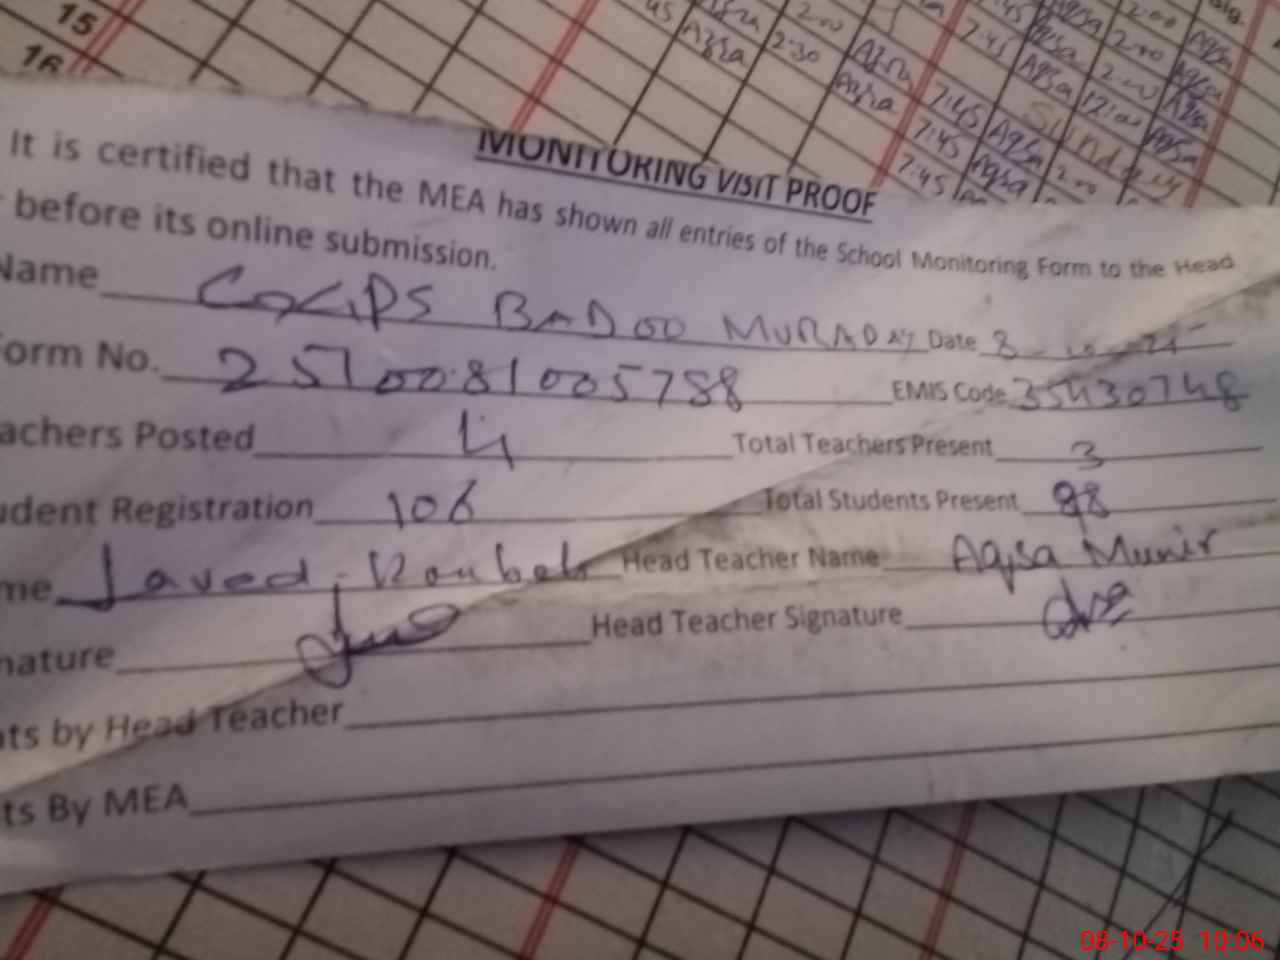 15
16
45 Azra 2:00
Azra 2:30 Azra
Azra
7:45 Aqsa 2:00 Aqsa
7:45 Aqsa 2:00 Aqsa
7:45 Aqsa 12:00 Aqsa
7:45 Aqsa 2:00
7:45
Sunday
MONITORING VISIT PROOF
It is certified that the MEA has shown all entries of the School Monitoring Form to the Head
before its online submission.
Name BADOO MURADAY Date 8-10-25
orm No. 2510081005788 EMIS Code 35430748
achers Posted 4 Total Teachers Present 3
udent Registration 106 Total Students Present 98
me Javed Head Teacher Name Aqsa Munir
nature Head Teacher Signature
ts by Head Teacher
ts By MEA
08-10-25 10:06